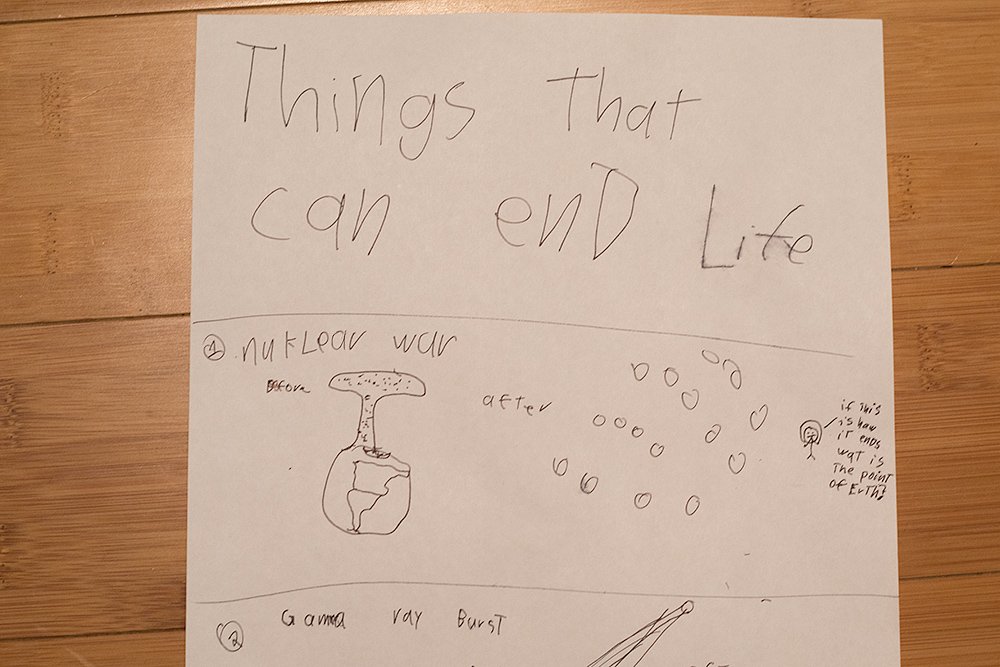 Things that
can enD Life
1 nuklear war
Before
after
if this
is haw
it ends
wat is
the point
of Erth?
2 Gamma ray Burst